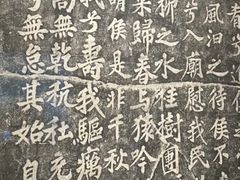 風汩之待侯不
兮入廟慰我民
柳之水桂樹團
來歸春与猿吟
侯是非千秋
我兮壽我驅癘
高無乾秔稌充
兮無怠其始自